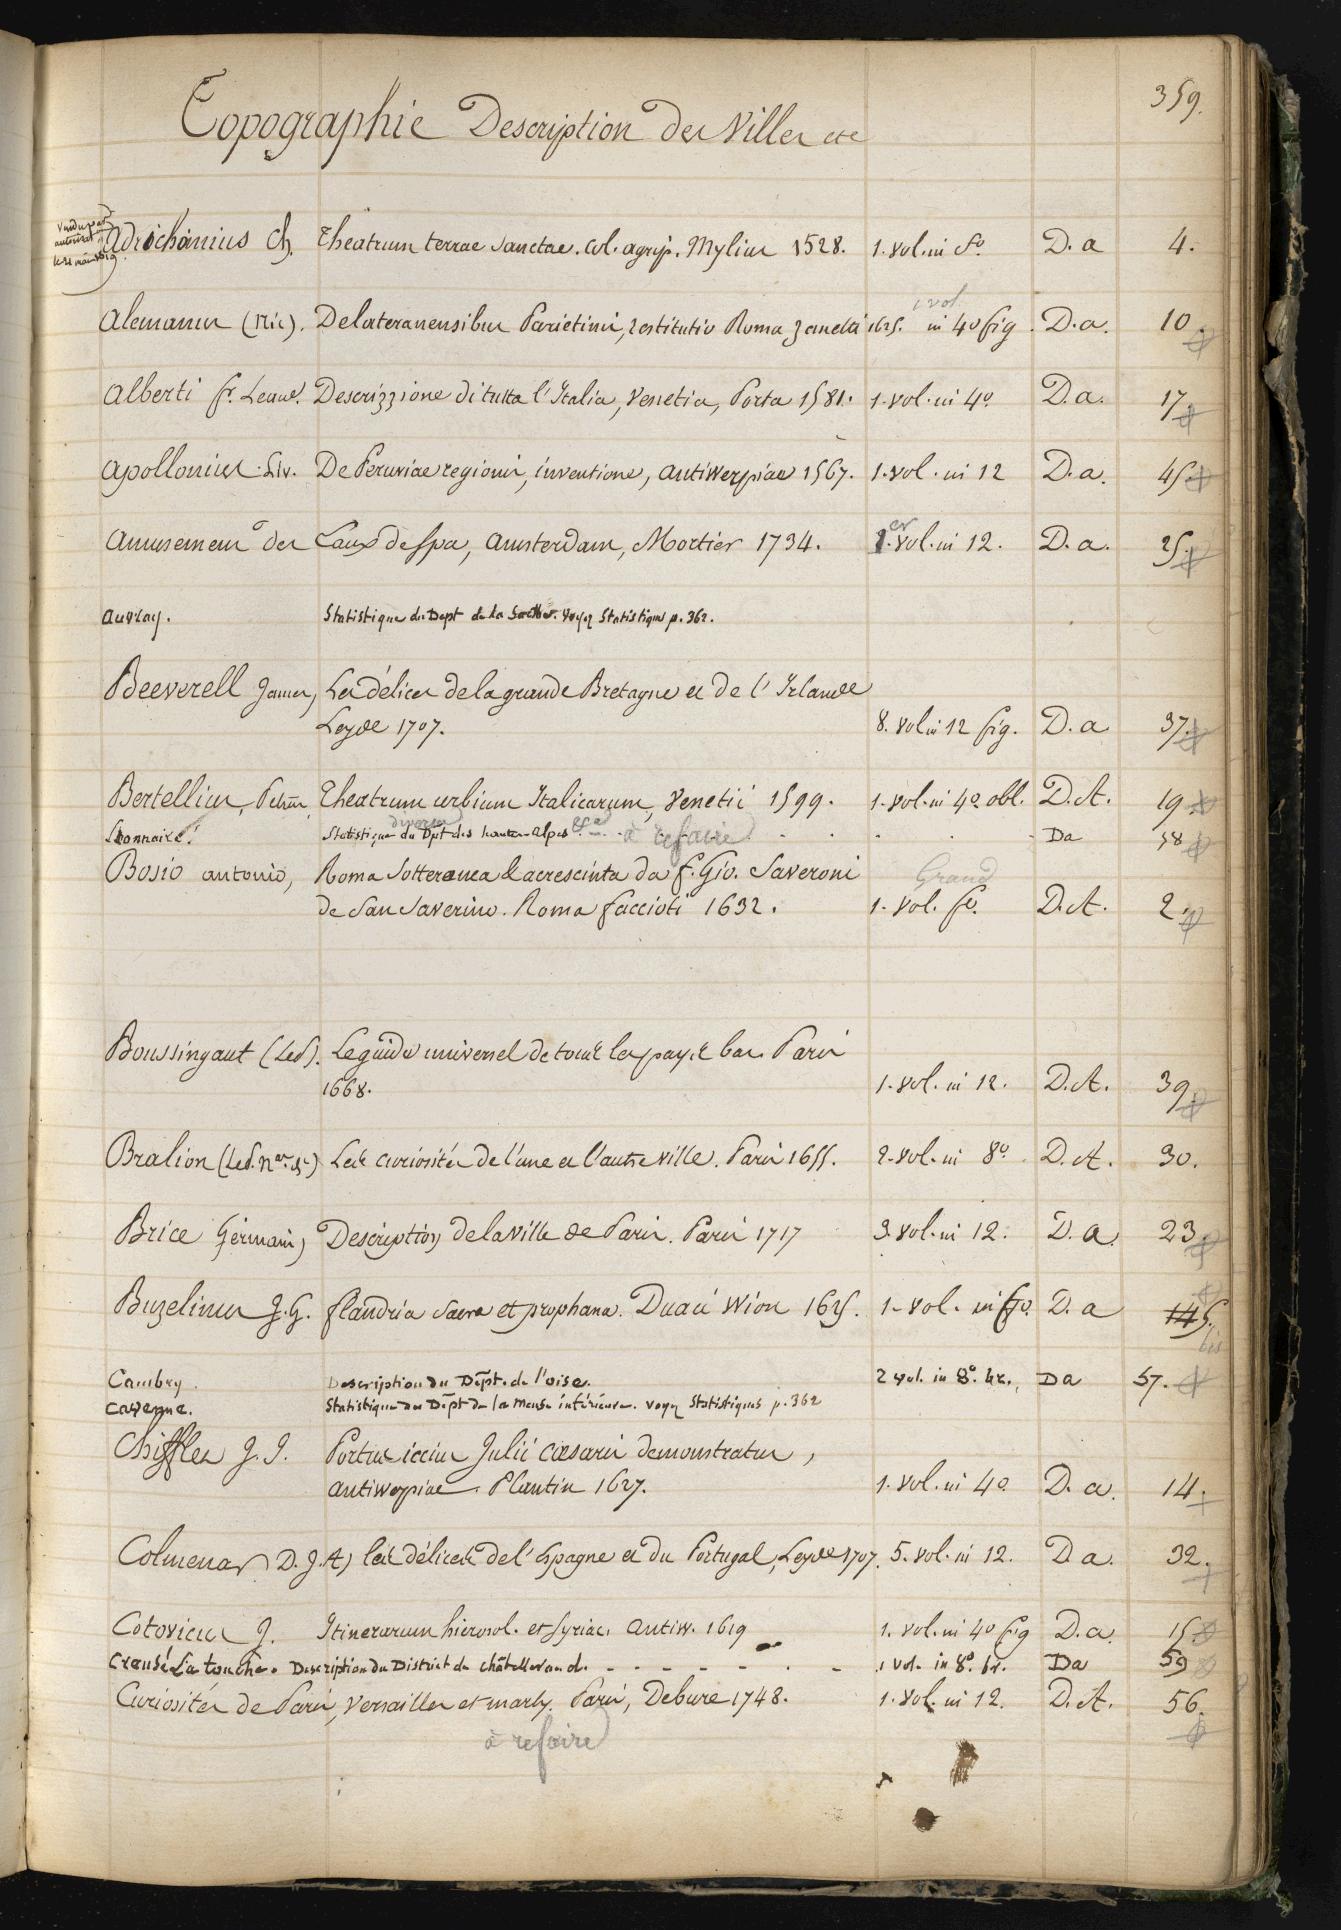 359.
Topographie Description des Villes etc
Adrichomius Ch. Theatrum terrae sanctae. Col. agrip. Mylius 1528. 1. vol. in fo. D. a 4.
Alemanus (Nic). De lateranensibus Parietinis, restitutis Roma, Zanetti 1625. 1 vol. in 4o fig. D. a. 10.
Alberti fr. Leand. Descrizzione di tutta l'Italia, Venetia, Porta 1581. 1. vol. in 4o. D. a. 17
Apollonius Liv. De Peruviae regionis, inventione, antiwerpiae 1567. 1. vol. in 12 D. a. 45
Amusemens des Eaux de Spa, Amsterdam, Mortier 1734. 1.er vol. in 12. D. a. 25.
Auvray. Statistique du Dept de la Sarthe. Voyez Statistique p. 362.
Beeverell James, Les délices de la grande Bretagne et de l'Irlande
Leyde 1707. 8. vol in 12 fig. D. a 37.
Bertellius, Petrus, Theatrum urbium Italicarum, Venetii 1599. 1. vol. in 4o obl. D. A. 19
Bonnaire. Statistique du Dpt des hautes-alpes à refaire Da 58
Bosio antonio, Roma Sotteranea & acrescinta da f. Gio. Saveroni
Grand
de San Saverino. Roma faccioti 1632. 1. vol. fo. D. A. 2.
Boussingaut (Led). Le guide universel de tous les pays bas. Paris
1668. 1. vol. in 12. D. A. 39.
Bralion (Led. Nas. de) Les curiosités de l'une et l'autre ville. Paris 1655. 2. vol. in 8o D. A. 30.
Brice Germain, Description de la ville de Paris. Paris 1717 3. vol. in 12. D. a. 23.
Buzelinus J. G. flandria sacra et prophana. Duaci Wion 1625. 1. vol. in fo. D. a 5.
bis
Cambry. Description du Dépt. de l'oise. 2 vol. in 8o. br. Da 57.
Cavenne. Statistique du Dépt de la Meuse inférieure. voyez Statistiques p. 362
Chifflet J. J. Portus iccius Julii cæsaris demonstratus,
antiwerpiae. Plantin 1627. 1. vol. in 4o D. a. 14.
Colmenar D. J. A) les délices de l'Espagne et du Portugal, Leyde 1707. 5. vol. in 12. D. a. 32.
Cotovicus J. Itinerarum hierosol. et Syriac. Antiw. 1619 1. vol. in 4o fig D. a. 15
Creusé La touche. Description du District de châtellerand. 1 vol. in 8o. br. Da 59
Curiosités de Paris, Versailles et marly. Paris, Debure 1748. 1. vol. in 12. D. A. 56.
à refaire